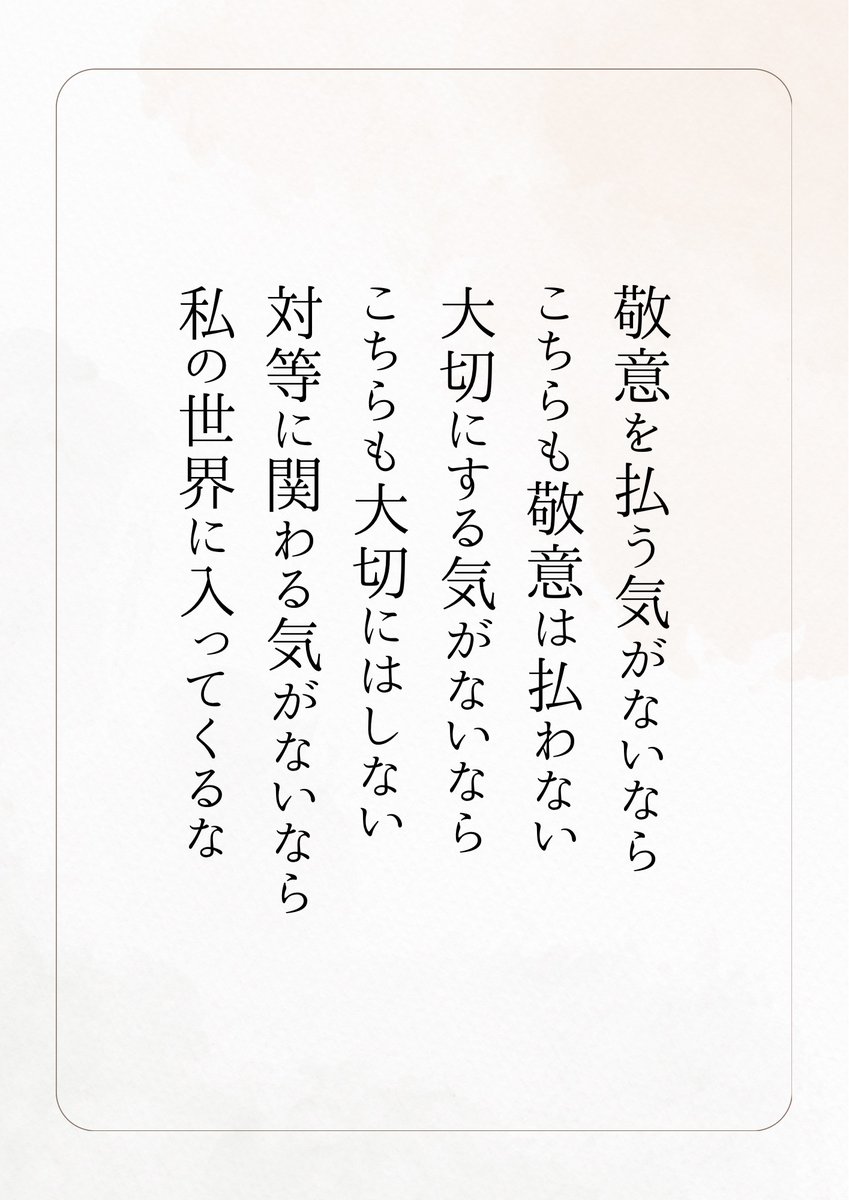 敬意を払う気がないなら
こちらも敬意は払わない
大切にする気がないなら
こちらも大切にはしない
対等に関わる気がないなら
私の世界に入ってくるな